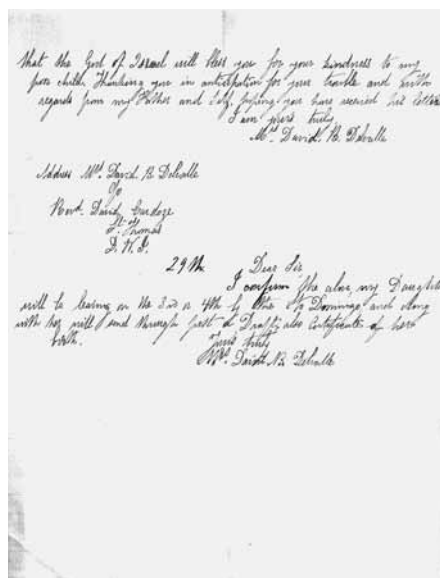 that the God of Israel will bless you for your kindness to my
poor child. Thanking you in anticipation for your trouble and with
regards from my Father and self, hoping you have received his letter
I am yours truly
Mrs. David. B. Delvalle
Address Mrs. David B. Delvalle
c/o
Revd. David Cardoze
St. Thomas
D. W. I.
29th Dear Sir,
I confirm the above, my Daughter
will be leaving on the 3rd or 4th by the Domingo and along
with her will send through post a Draft, also Certificate of her
birth.
Yours truly
Mrs. David B. Delvalle